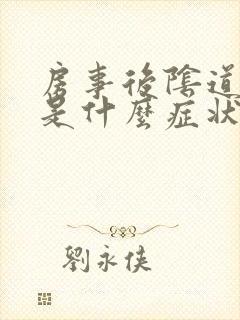 房事後陰道
是什麼症狀
劉永俠